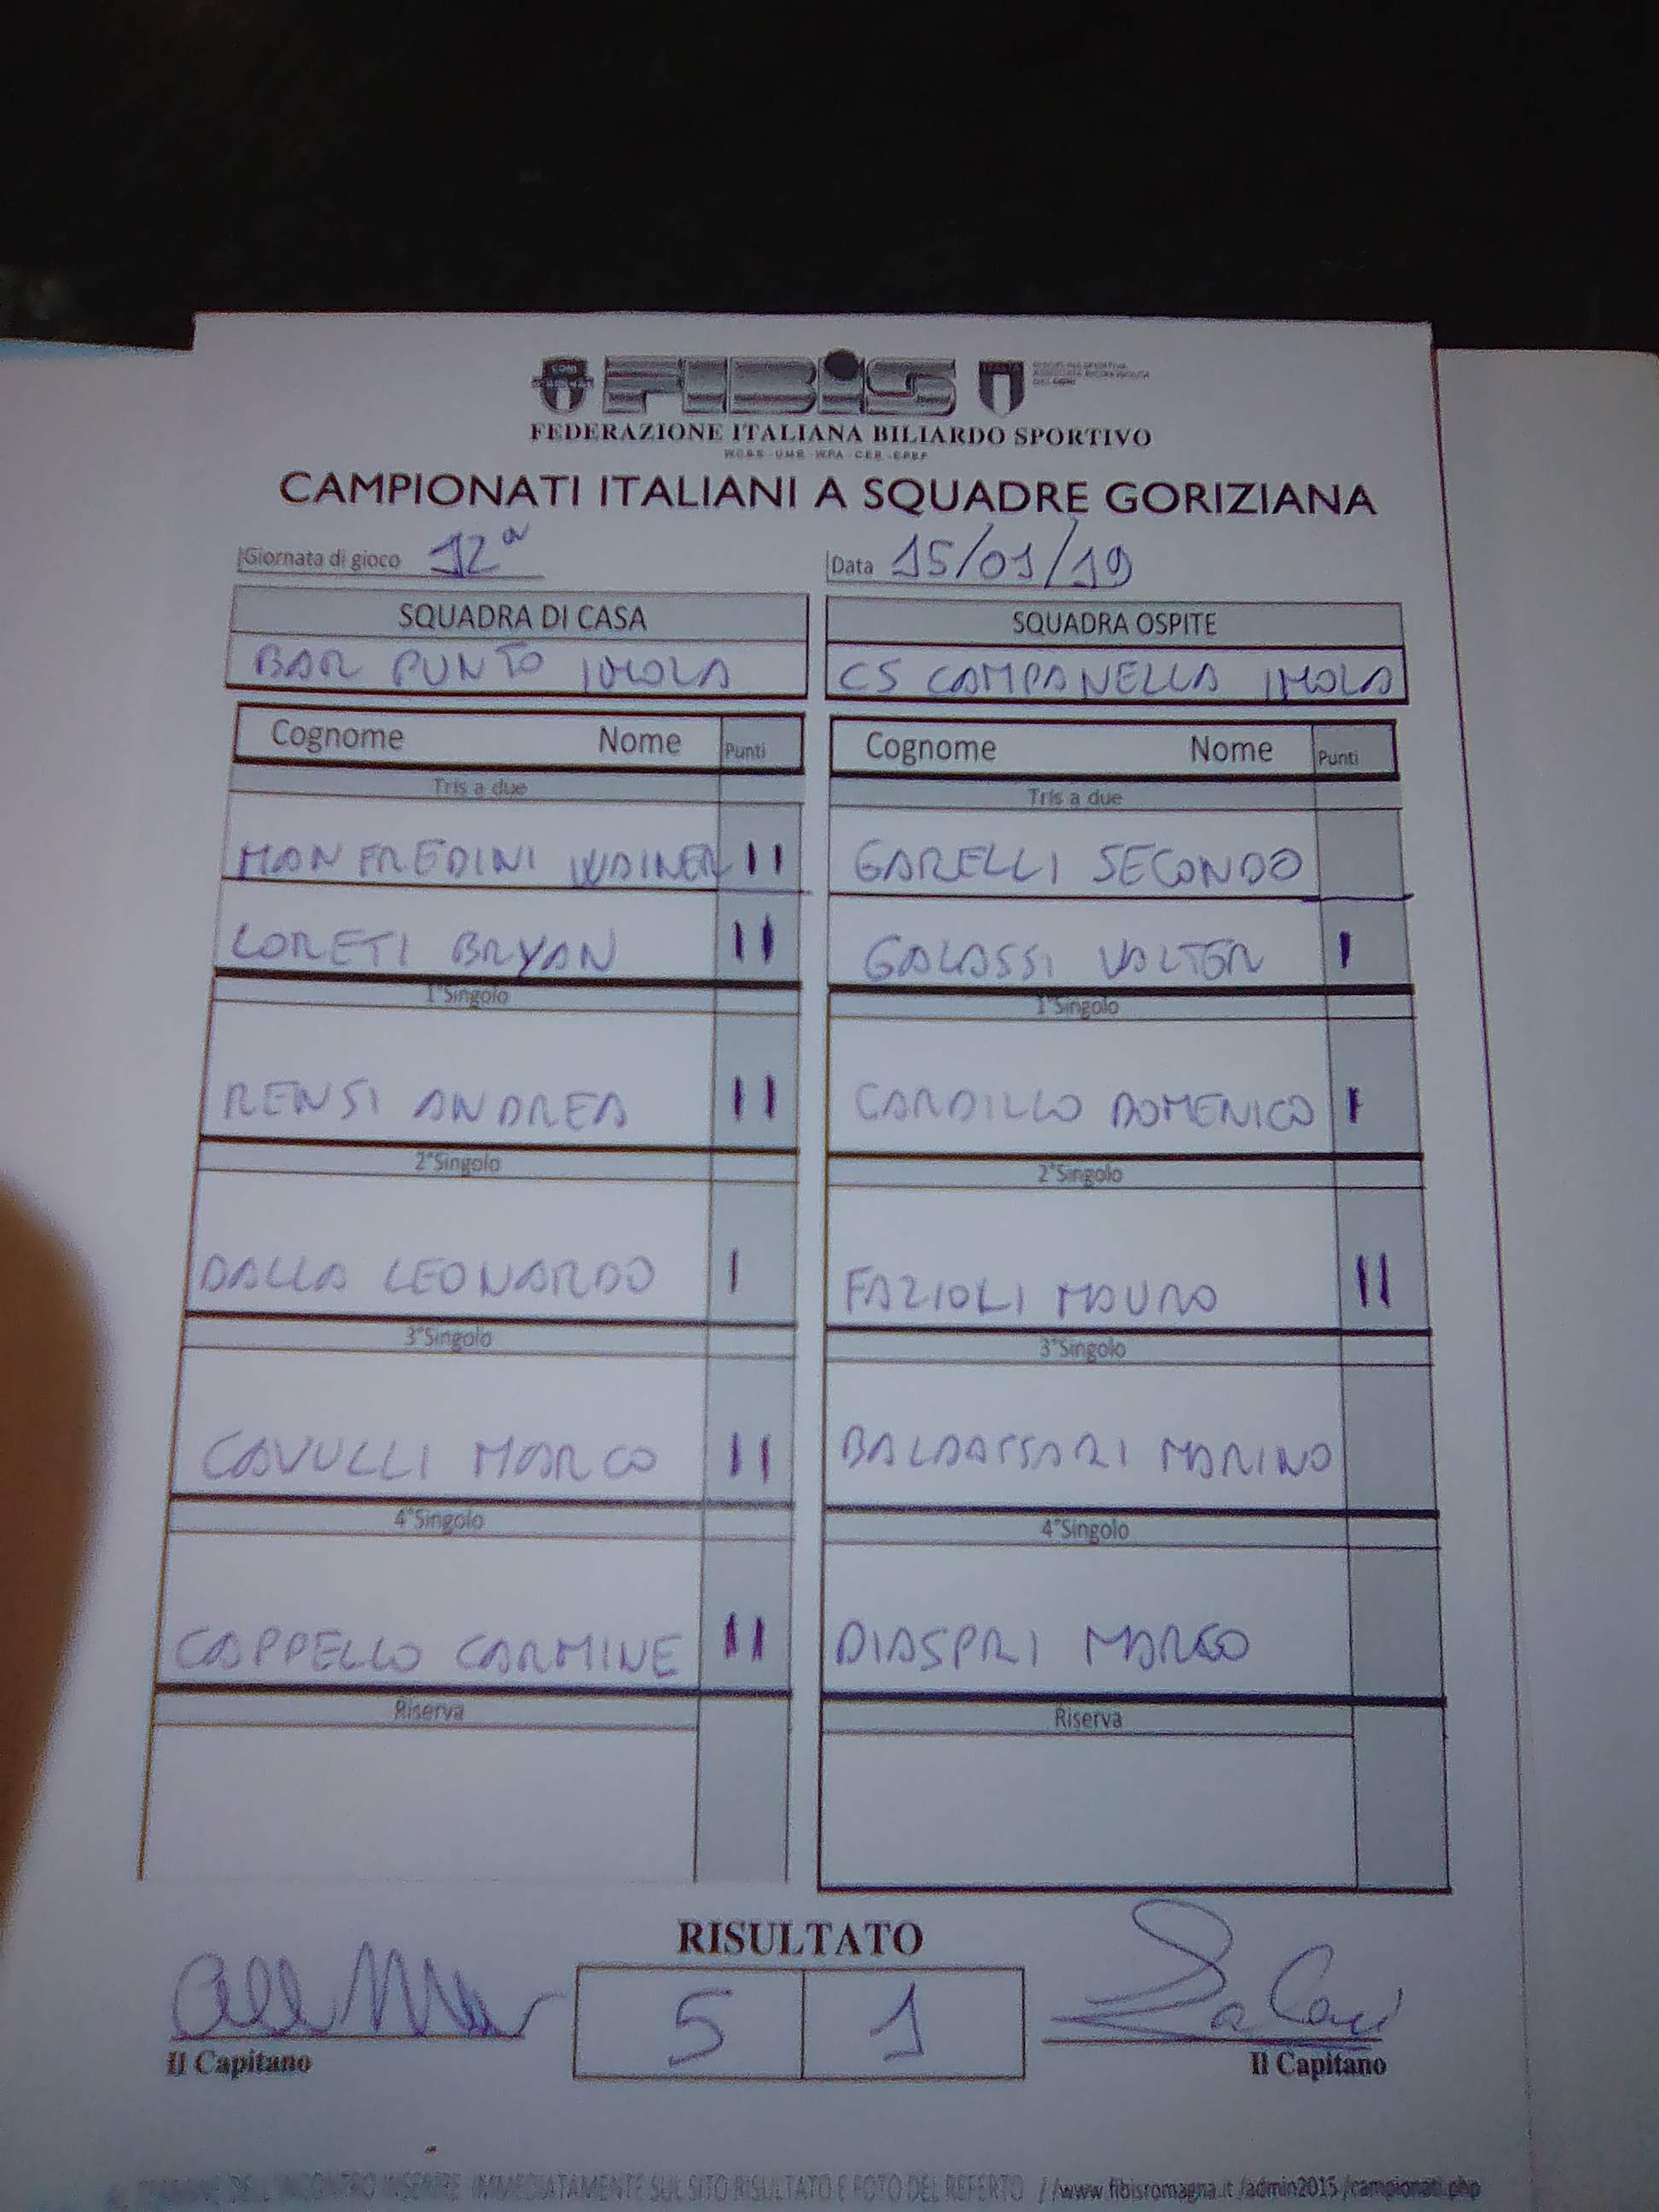 FIBIS
FEDERAZIONE ITALIANA BILIARDO SPORTIVO
CAMPIONATI ITALIANI A SQUADRE GORIZIANA
Giornata di gioco 12a Data 15/01/19
SQUADRA DI CASA SQUADRA OSPITE
BAR PUNTO IMOLA CS CAMPANELLA IMOLA
Cognome Nome Punti Cognome Nome Punti
Tris a due Tris a due
MANFREDINI WAINER II GARELLI SECONDO
LORETI BRYAN II GALASSI VALTER I
1°Singolo 1°Singolo
RENSI ANDREA II CARDILLO DOMENICO I
2°Singolo 2°Singolo
DALLA LEONARDO I FAZIOLI MAURO II
3°Singolo 3°Singolo
CAVULLI MARCO II BALDASSARI MARINO
4°Singolo 4°Singolo
CAPPELLO CARMINE II DIASPRI MARCO
Riserva Riserva
RISULTATO
5 1
Il Capitano Il Capitano
DELL'INCONTRO INSERIRE IMMEDIATAMENTE SUL SITO RISULTATO E FOTO DEL REFERTO //www.fibisromagna.it/admin2015/campionati.php